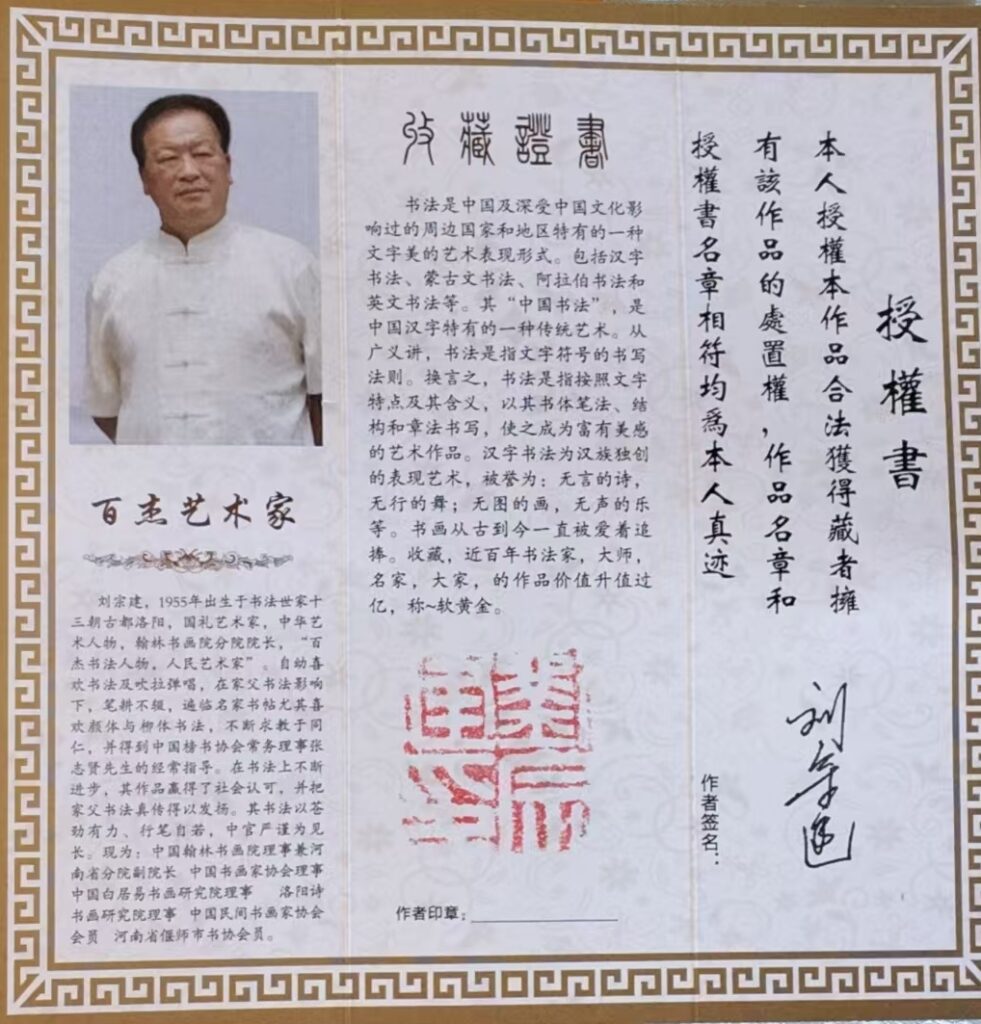 百杰艺术家
刘宗建，1955年出生于书法世家十
三朝古都洛阳，国礼艺术家，中华艺
术人物，翰林书画院分院院长，“百
杰书法人物，人民艺术家”。自幼喜
欢书法及吹拉弹唱，在家父书法影响
下，笔耕不辍，遍临名家书帖尤其喜
欢颜体与柳体书法，不断求教于同
仁，并得到中国榜书协会常务理事张
志贤先生的经常指导。在书法上不断
进步，其作品赢得了社会认可，并把
家父书法真传得以发扬。其书法以苍
劲有力、行笔自若，中宫严谨为见
长。现为：中国翰林书画院理事兼河
南省分院副院长 中国书画家协会理事
中国白居易书画研究院理事 洛阳诗
书画研究院理事 中国民间书画家协会
会员 河南省偃师市书协会员。
收藏證書
书法是中国及深受中国文化影
响过的周边国家和地区特有的一种
文字美的艺术表现形式。包括汉字
书法、蒙古文书法、阿拉伯书法和
英文书法等。其“中国书法”，是
中国汉字特有的一种传统艺术。从
广义讲，书法是指文字符号的书写
法则。换言之，书法是指按照文字
特点及其含义，以其书体笔法、结
构和章法书写，使之成为富有美感
的艺术作品。汉字书法为汉族独创
的表现艺术，被誉为：无言的诗，
无行的舞；无图的画，无声的乐
等。书画从古到今一直被爱着追
捧。收藏，近百年书法家，大师，
名家，大家，的作品价值升值过
亿，称~软黄金。
作者印章：
授權書
本人授權本作品合法獲得藏者擁
有該作品的處置權，作品名章和
授權書名章相符均爲本人真迹
作者签名：
刘宗建